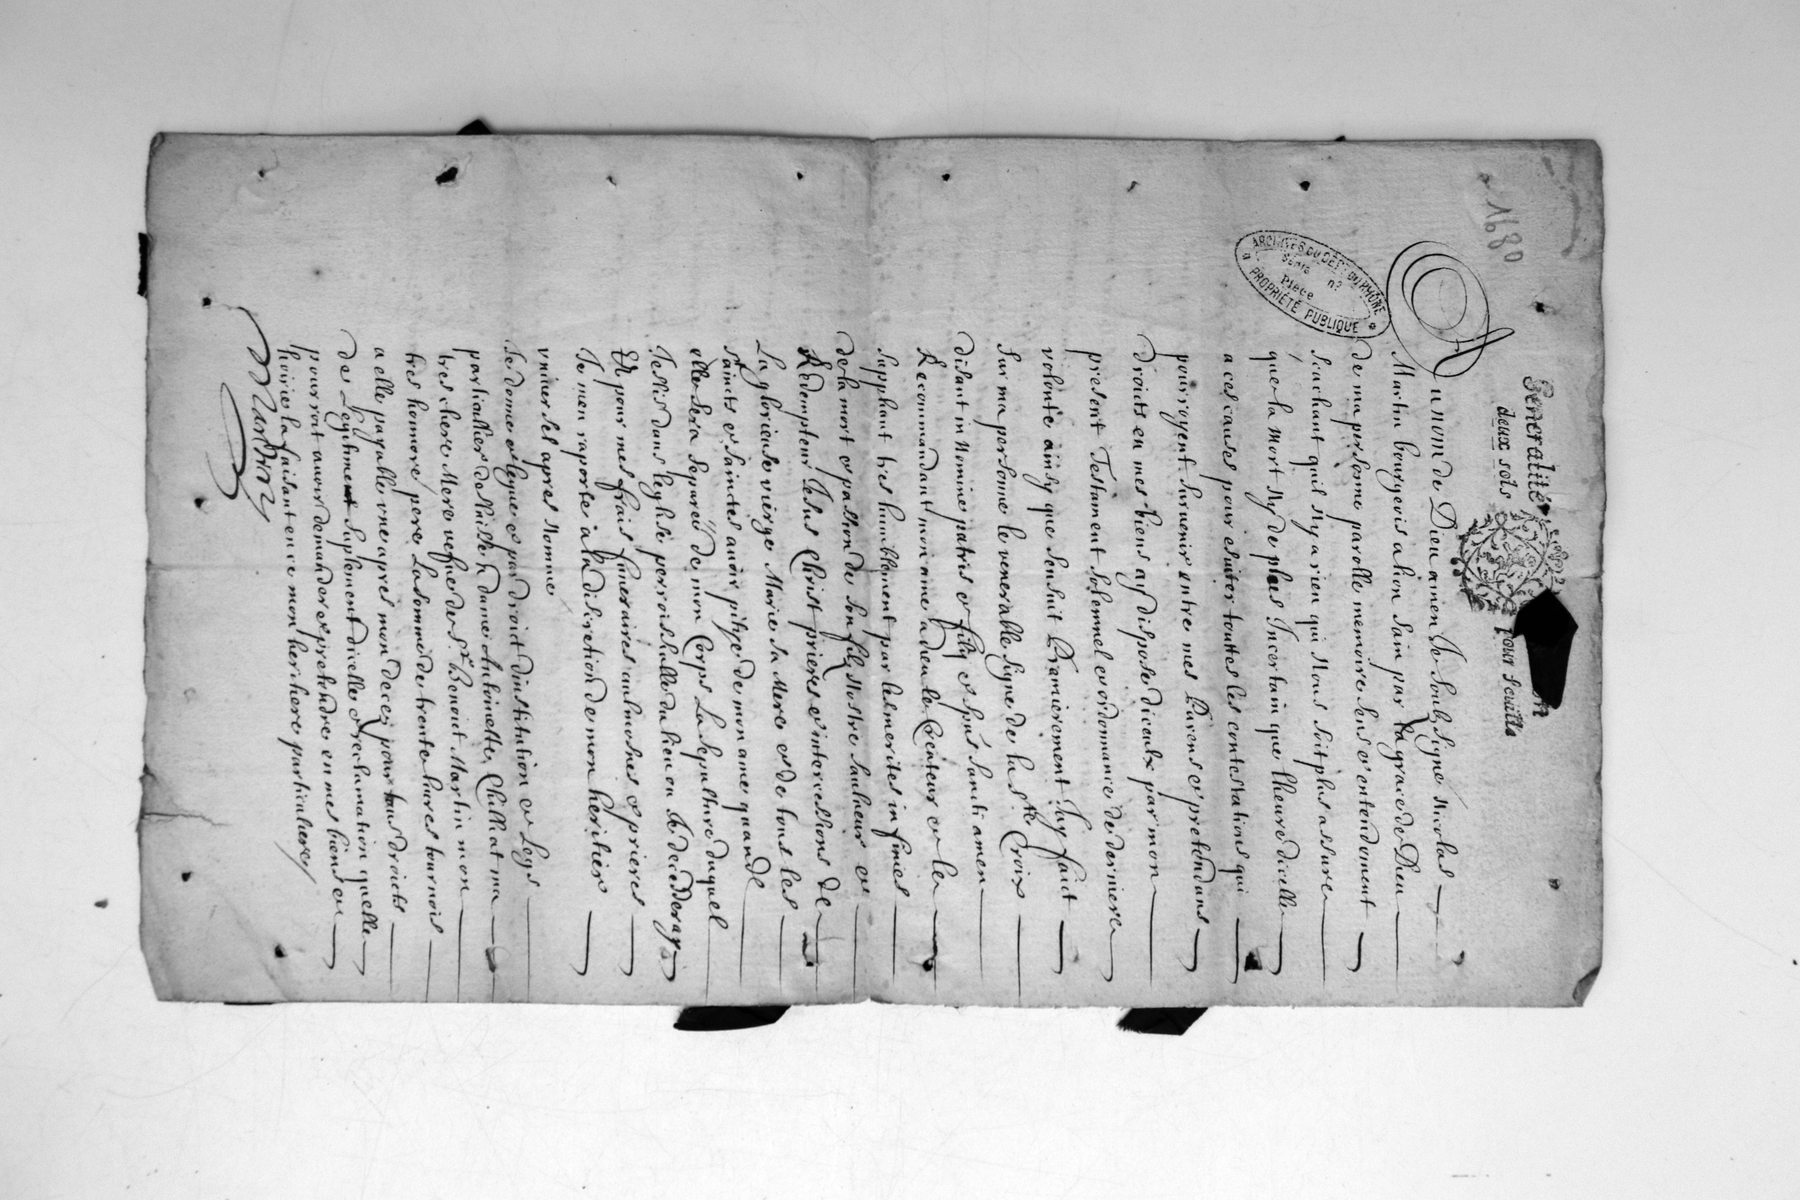 1680
Generalité
deux sols pour feuille
ARCHIVES DU DEPT DU RHÔNE
Série n°
Pièce
PROPRIÉTÉ PUBLIQUE
Au nom de Dieu amen Je soubsigne Nicolas
Martin bourgeois a lion sain par la grace de Dieu
de ma personne parolle memoire sens et entendement
scachant quil ny a rien qui nous soit plus assure
que la mort ny de plus Incertain que lheure dicelle
a ces causes pour esuiter touttes les contestations qui
pourroyent suruenir entre mes Parens et pretendans
Droits en mes biens ay dispose diceulx par mon
present Testament solemnel et ordonnance de derniere
volonté ainsy que sensuit Premierement Jay faict
sur ma personne le venerable signe de la ste Croix
disant in Nomine patris et filij et spus sancti amen
Recommandant mon ame a dieu le Createur et le
suppliant tres humblement par les merites infinies
de la mort et passion de son fils Nostre sauueur et
Redempteur Jesus Christ prieres et intercessions de
La glorieuse vierge Marie sa Mere et de tous les
saincts et sainctes auoir pitye de mon ame quand
elle sera separeé de mon Corps La sepulture duquel
Je eslis dans leglise parroischialle du lieu ou Je decedderay
Et pour mes frais funeraires aulmosnes et prieres
Je men raporte a la discretion de mon héritier
vniuersel apres Nomme
Je donne et legue et par droict dinstitution et Legs
particullier delaisse a dame Antoinette Chillat ma
tres chere Mere vefue de Sr Benoit Martin mon
tres honnore pere La somme de trente liures tournois
a elle payable vne apres mon decez pour tous droicts
de Legitime suplement dicelle et reclamation quelle
pourroit auoir demander et pretendre en mes biens et
hoirie la faisant en ce mon heritiere particuliere
Martin